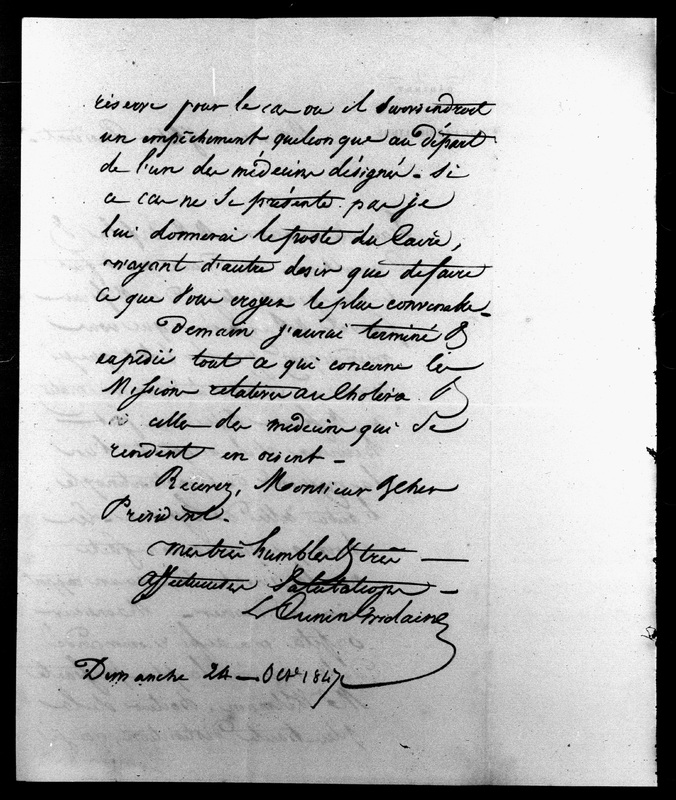 réserve pour le cas où il surviendroit
un empêchement quelconque au départ
de l'un des médecins désignés. si
ce cas ne se présente pas je
lui donnerai le poste du Caire,
n'ayant d'autre desir que de faire
ce que vous croyez le plus convenable.
Demain j'aurai terminé &
expédié tout ce qui concerne les
Missions relatives au Choléra &
à celles des médecins qui se
rendent en orient.
Recevez, Monsieur & cher
Président.
mes très humbles & très
affectueuses Salutations.
L Cunin Gridaine
Dimanche 24 Octe 1847